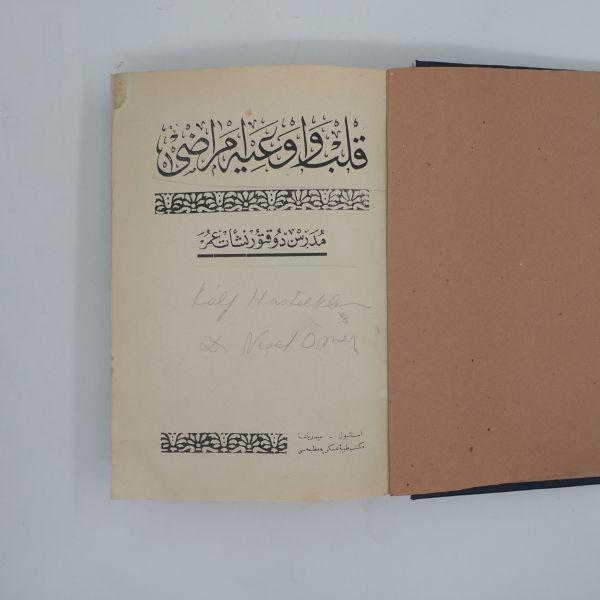 قلب و اوعیه امراضی
مدرس دوقتور نشأت عمر
Kalp Hastalıkları
Dr Neşet Ömer
استانبول - حیدرپاشا
مکتب طبیهٔ عسکریه مطبعه‌سی